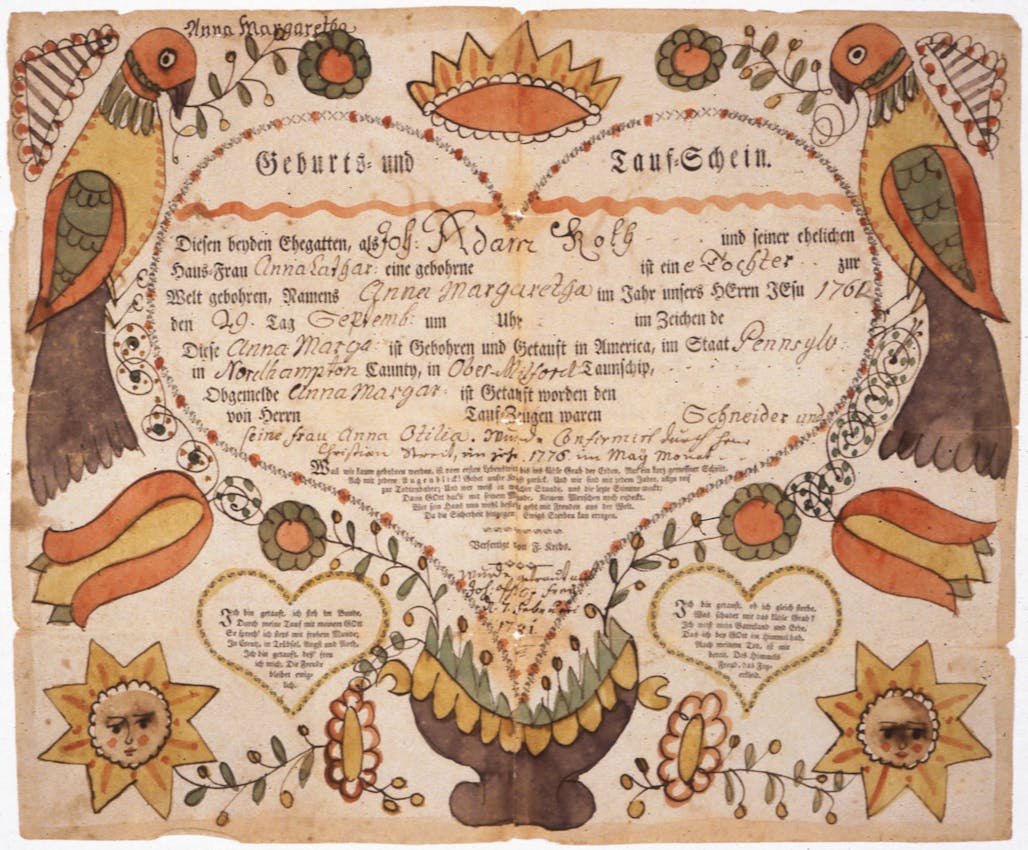 Anna Margaretha
Geburts- und Tauf-Schein.
Diesen beyden Ehegatten, als Joh: Adam Roth und seiner ehelichen
Haus-Frau Anna Cathar: eine gebohrne ist eine Dochter zur
Welt gebohren, Namens Anna Margaretha im Jahr unsers HErrn JEsu 1761
den 29. Tag Septemb: um Uhr im Zeichen de
Diese Anna Marga: ist Gebohren und Getauft in America, im Staat Pennsylv:
in Nordhampton Caunty, in Ober-Milford Taunschip,
Obgemelde Anna Margar: ist Getauft worden den
von Herrn Tauf-Zeugen waren Schneider und
seine frau Anna Otilia. Wurde Confermirt durch
Christian 1776. im May Monat
Was wir kaum gebohren werden, ist vom ersten Lebenstritt bis ins kühle Grab der Erden, Nur ein kurz gemeßner Schritt.
Ach mit jedem Augenblick! Gehet unsre Kraft zurück, Und wir sind mit jedem Jahre, allzu reif
zur Todtenbahre; Und wer weiß in welcher Stunde, uns die letzte Stimme weckt;
Dann GOtt hats mit seinem Munde, Keinem Menschen noch endeckt.
Wer sein Haus nun wohl bestellt geht mit Freuden aus der Welt.
Da die Sicherheit hingegen, Ewigs Sterben kan erregen.
Verfertigt von F. Krebs.
wurde getraut
Joh frey
1781
Ich bin getauft, ich steh im Bunde,
Durch meine Tauf mit meinem GOtt
So sprech' ich stets mit frohem Munde;
In Creutz, in Trübsal, Angst und Noth,
Ich bin getauft, deß' freu
ich mich, Die Freude
bleibet ewig-
lich.
Ich bin getauft, ob ich gleich sterbe,
Was schadet mir das kühle Grab?
Ich weiß mein Vatterland und Erbe,
Das ich bey GOtt im Himmel hab,
Nach meinem Tod, ist mir
bereit, Des Himmels
Freud, das Fey-
erkleid.